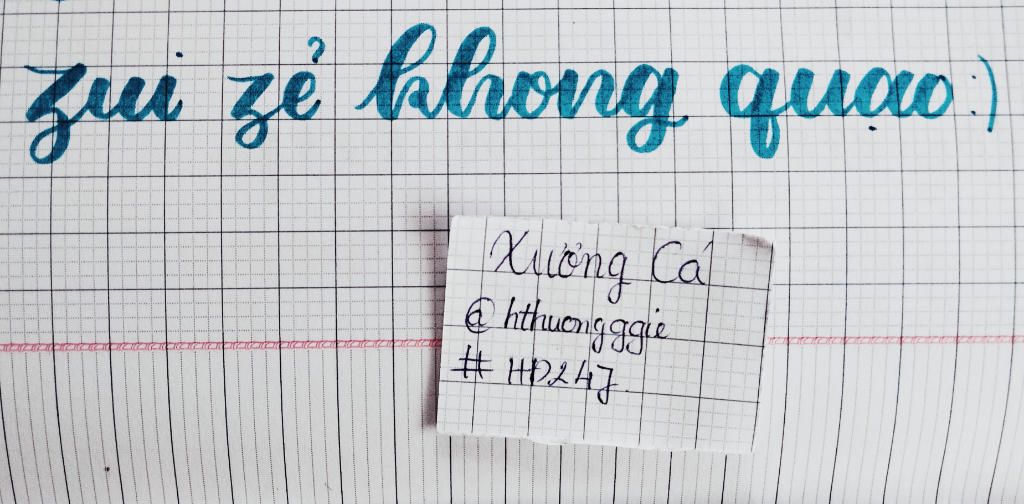 zui zẻ khong quạo :)
Xưởng Cá
@hthuongggie
#HD247